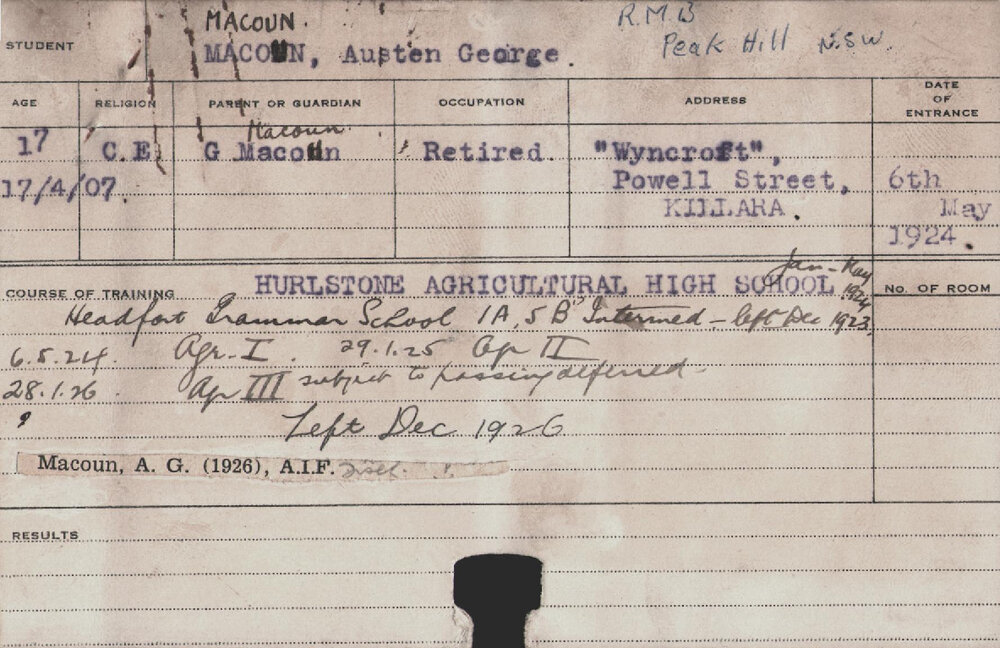 MACOUN. R.M.B
STUDENT MACOUN, Austen George. Peak Hill N.S.W.
AGE RELIGION PARENT OR GUARDIAN OCCUPATION ADDRESS DATE OF ENTRANCE
Macoun
17 C.E G Macoun Retired. "Wyncroft",
17/4/07. Powell Street, 6th
KILLARA. May
1924.
Jan - May
COURSE OF TRAINING HURLSTONE AGRICULTURAL HIGH SCHOOL 1924 No. OF ROOM
Headfort Grammar School 1A, 5 B's Intermed - left Dec 1923.
6.5.24. Agr. I. 29.1.25 Agr II
28.1.26 Agr III subject to passing deferred
Left Dec 1926
Macoun, A. G. (1926), A.I.F.
RESULTS